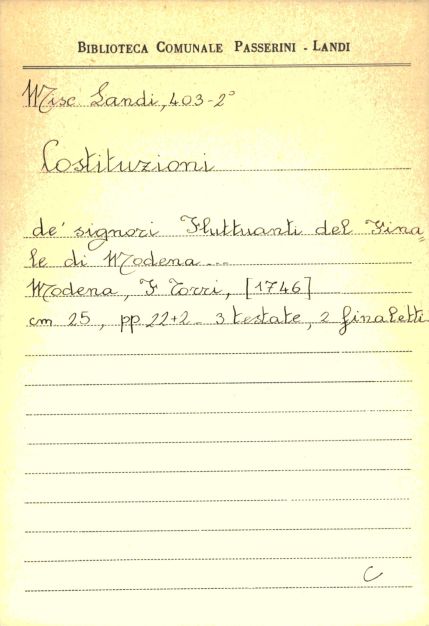 BIBLIOTECA COMUNALE PASSERINI - LANDI
Misc Landi, 403-2°
Costituzioni
de' signori Fluttuanti del Fina=
le di Modena...
Modena, F Torri, [1746]
cm 25, pp 22+2. 3 testate, 2 finaletti
C